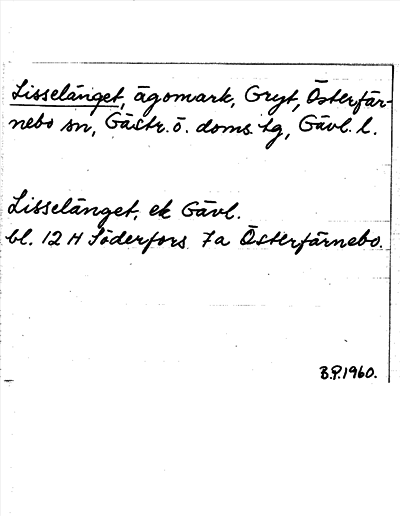 Lisselänget, ägomark, Gryt, Österfär-
nebo sn, Gästr. ö. doms. tg, Gävl. l.
Lisselänget, ek Gävl.
bl. 12 H Söderfors 7a Österfärnebo.
B.P. 1960.